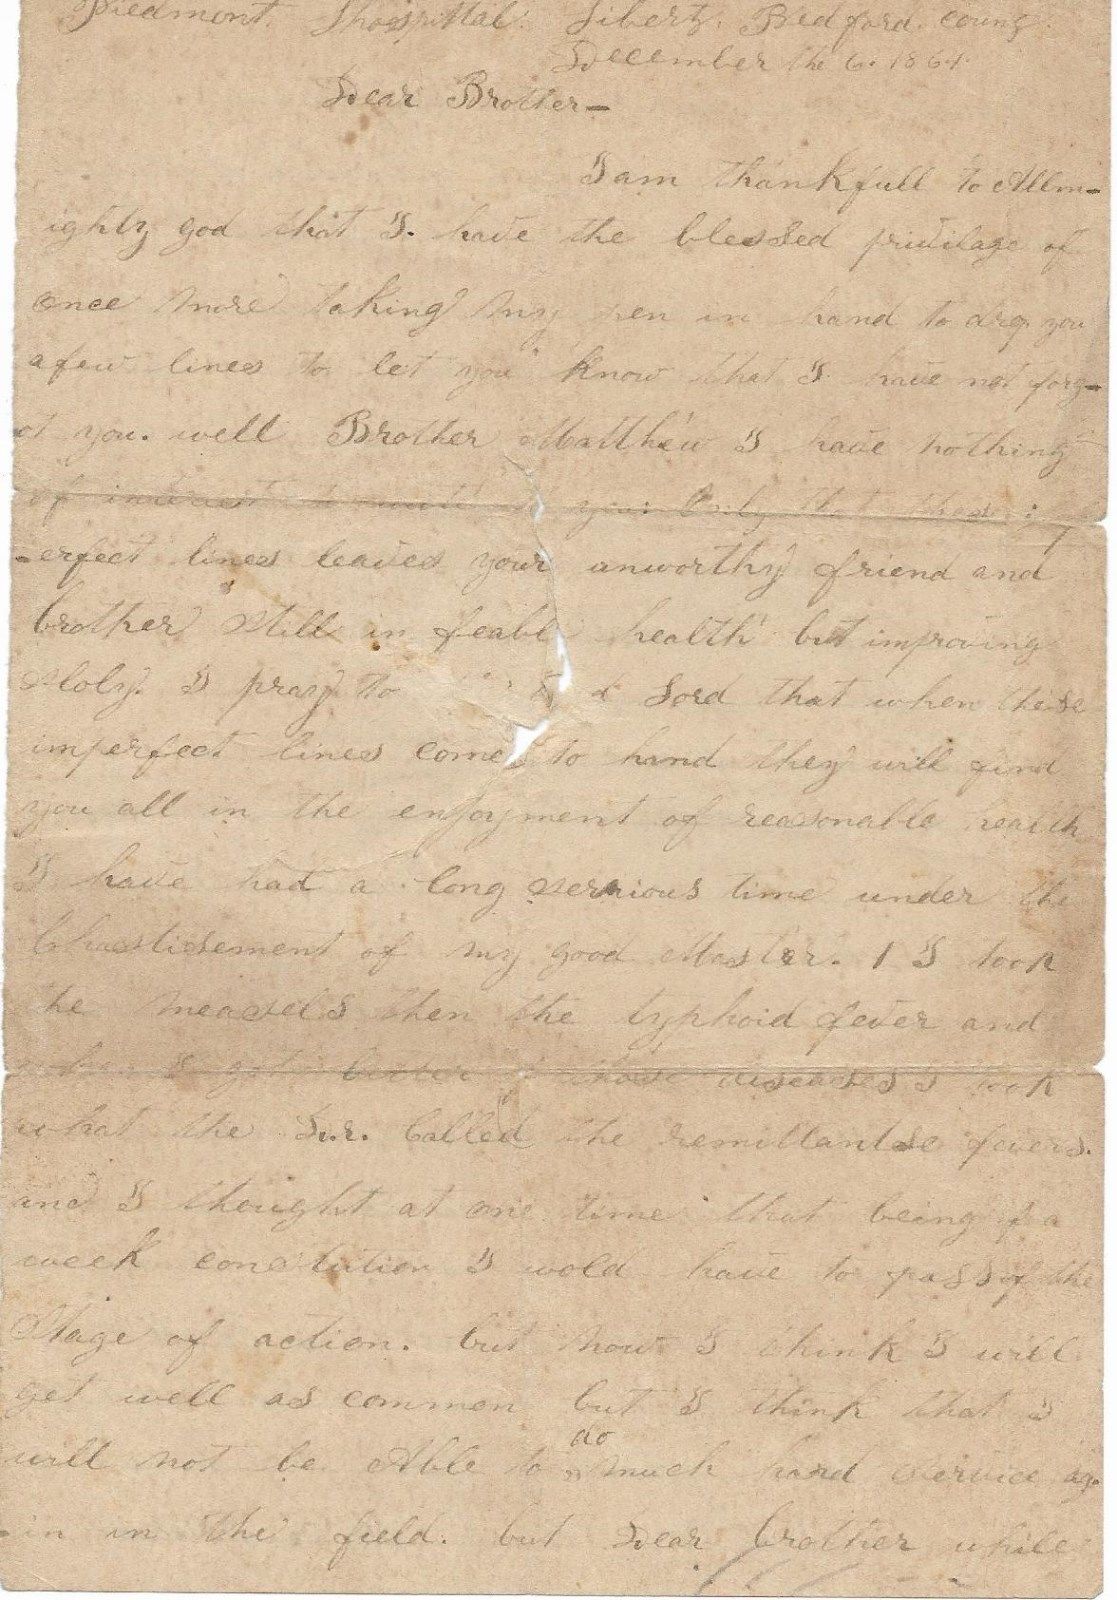 Piedmont Hospittal. Liberty. Bedford. county.
December the 6. 1864.
Dear Brother-
I am thankfull to Allm-
ighty god that I. have the blessed privilage of
once more taking my pen in hand to drop you
a few lines to let you know that I have not forg-
ot you. well Brother Matthew I have nothing
of interest to write to you: Only that these
-erfect lines leaves your unworthy friend and
brother still in feable health but improving
sloly. I pray to Lord that when these
imperfect lines comes to hand they will find
you all in the enjoyment of reasonable health
I have had a long serrious time under the
Chastisement of my good Master. I took
the measels then the typhoid fever and
when I got better of those diseases I took
what the Dr. Called the remittantse fevers.
and I thought at one time that being of a
week constution I wold have to pass of the
Stage of action. but now I think I will
get well as common but I think that I
do
will not be Able to much hard service ag-
in in the field. but Dear brother while